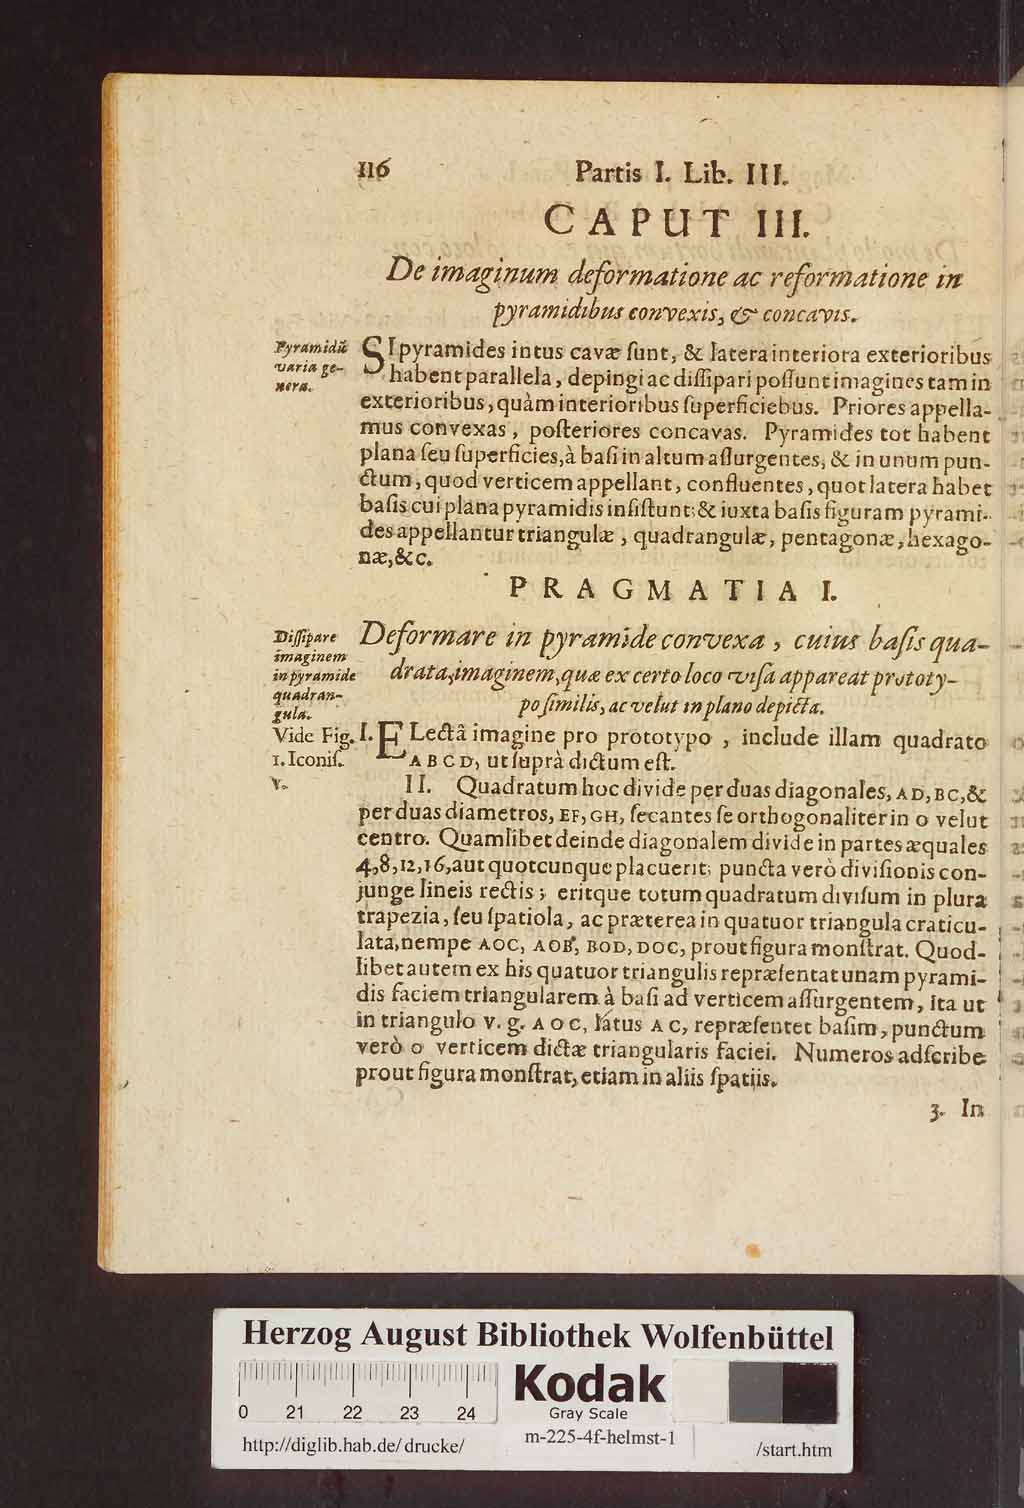 116 Partis I. Lib. III.
CAPUT III.
De imaginum deformatione ac reformatione in
pyramidibus convexis, & concavis.
Pyramidũ
varia ge-
nera.
SI pyramides intus cavæ ſunt, & latera interiora exterioribus
habent parallela, depingi ac diſſipari poſſunt imagines tam in
exterioribus, quàm interioribus ſuperficiebus. Priores appella-
mus convexas, poſteriores concavas. Pyramides tot habent
plana ſeu ſuperficies, à baſi in altum aſſurgentes, & in unum pun-
ctum, quod verticem appellant, confluentes, quot latera habet
baſis cui plana pyramidis inſiſtunt: & iuxta baſis figuram pyrami-
des appellantur triangulæ, quadrangulæ, pentagonæ, hexago-
næ, &c.
PRAGMATIA I.
Diſſipare
imaginem
in pyramide
quadran-
gula.
Deformare in pyramide convexa, cuius baſis qua-
drata, imaginem, quæ ex certo loco viſa appareat prototy-
po ſimilis, ac velut in plano depicta.
Vide Fig.
1. Iconiſ.
v.
I. ELectâ imagine pro prototypo, include illam quadrato
ABCD, ut ſuprà dictum eſt.
II. Quadratum hoc divide per duas diagonales, AD, BC, &
per duas diametros, EF, GH, ſecantes ſe orthogonaliter in o velut
centro. Quamlibet deinde diagonalem divide in partes æquales
4, 8, 12, 16, aut quotcunque placuerit; puncta verò diviſionis con-
junge lineis rectis; eritque totum quadratum diviſum in plura
trapezia, ſeu ſpatiola, ac præterea in quatuor triangula craticu-
lata, nempe AOC, AOB, BOD, DOC, prout figura monſtrat. Quod-
libet autem ex his quatuor triangulis repræſentat unam pyrami-
dis faciem triangularem à baſi ad verticem aſſurgentem, ita ut
in triangulo v. g. AOC, latus AC, repræſentet baſim, punctum
verò o verticem dictæ triangularis faciei. Numeros adſcribe
prout figura monſtrat, etiam in aliis ſpatiis.
3. In
Herzog August Bibliothek Wolfenbüttel
Kodak
Gray Scale
0 21 22 23 24
http://diglib.hab.de/drucke/ m-225-4f-helmst-1 /start.htm